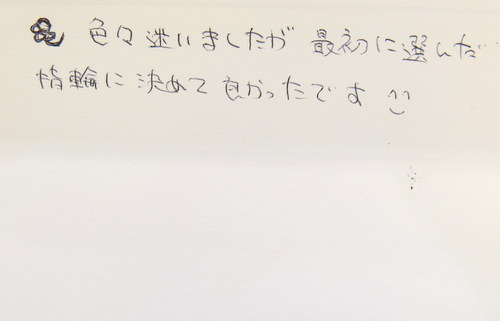 色々迷いましたが 最初に選んだ
指輪に決めて良かったです